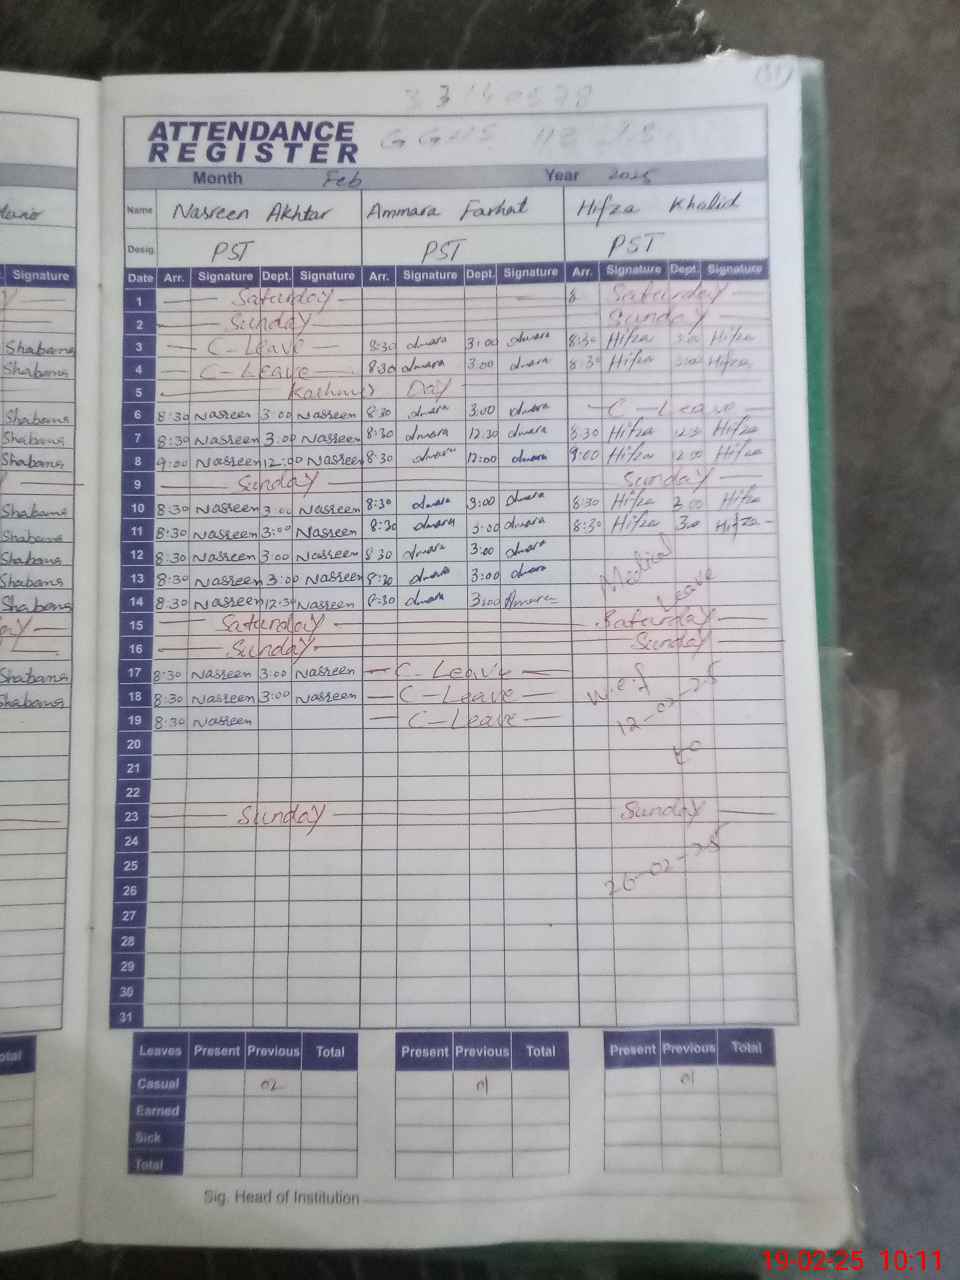 33140578
ATTENDANCE
REGISTER
Month Feb Year 2025
Name Nasreen Akhtar Ammara Farhat Hifza Khalid
Desig. PST PST PST
Signature Date Arr. Signature Dept. Signature Arr. Signature Dept. Signature Arr. Signature Dept. Signature
1 Saturday 8 Saturday
2 Sunday Sunday
Shabana 3 C-Leave 8:30 3:00 8:30 Hifza 3:00 Hifza
Shabana 4 C-Leave 8:30 3:00 8:30 Hifza 3:00 Hifza
5 Kashmir Day
Shabana 6 8:30 Nasreen 3:00 Nasreen 8:30 3:00 C-Leave
Shabana 7 8:30 Nasreen 3:00 Nasreen 8:30 12:30 8:30 Hifza 12:30 Hifza
Shabana 8 9:00 Nasreen 12:00 Nasreen 8:30 12:00 9:00 Hifza 12:00 Hifza
9 Sunday Sunday
Shabana 10 8:30 Nasreen 3:00 Nasreen 8:30 3:00 8:30 Hifza 3:00 Hifza
Shabana 11 8:30 Nasreen 3:00 Nasreen 8:30 3:00 8:30 Hifza 3:00 Hifza
Shabana 12 8:30 Nasreen 3:00 Nasreen 8:30 3:00 Medical
Shabana 13 8:30 Nasreen 3:00 Nasreen 8:30 3:00 Leave
Shabana 14 8:30 Nasreen 12:30 Nasreen 8:30 3:00
15 Saturday Saturday
16 Sunday Sunday
Shabana 17 8:30 Nasreen 3:00 Nasreen C-Leave w.e.f
Shabana 18 8:30 Nasreen 3:00 Nasreen C-Leave
19 8:30 Nasreen C-Leave 12-02-25
20 to
21
22
23 Sunday Sunday
24
25
26 26-02-25
27
28
29
30
31
Leaves Present Previous Total Present Previous Total Present Previous Total
Casual 02 01 01
Earned
Sick
Total
Sig. Head of Institution
19-02-25 10:11